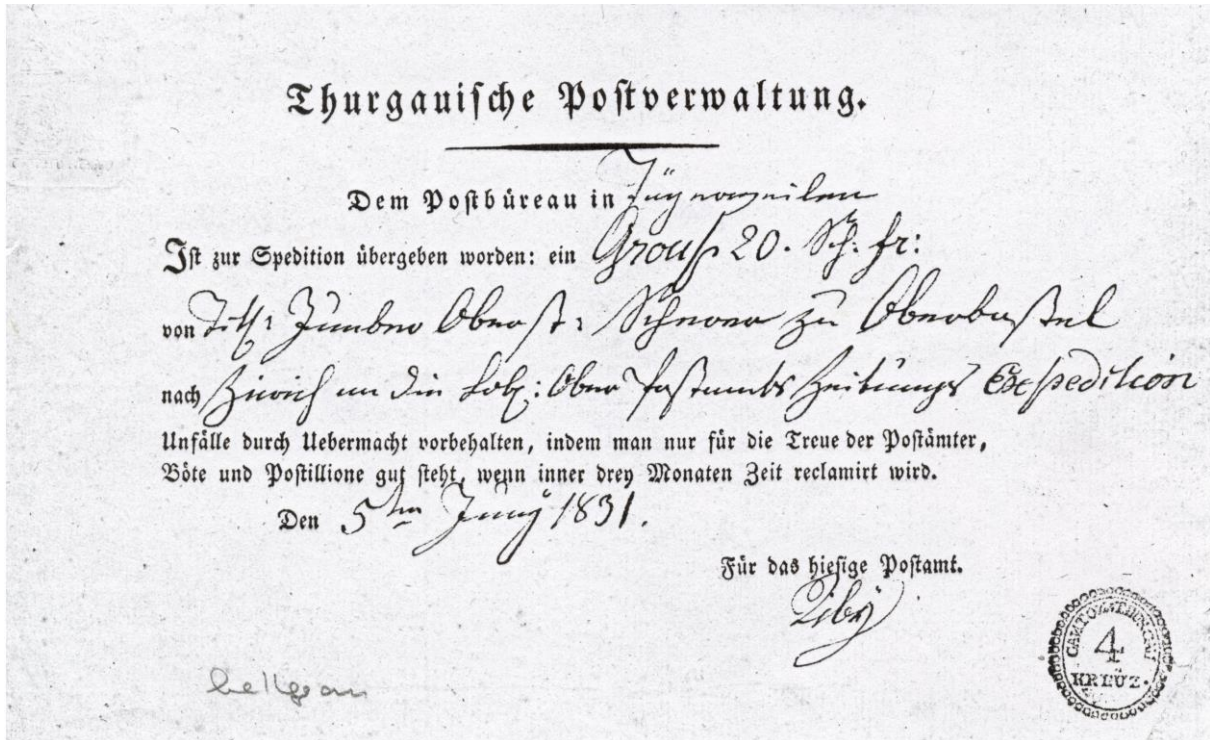 Thurgauische Postverwaltung.
Dem Postbüreau in Tägerweilen
Ist zur Spedition übergeben worden: ein Group 20. Sch: fr:
von Tit: Junker Oberst: Scherer zu Oberkastel
nach Zürich an die Lobl: Ober Postamts Zeitungs Expedition
Unfälle durch Uebermacht vorbehalten, indem man nur für die Treue der Postämter,
Böte und Postillione gut steht, wenn inner drey Monaten Zeit reclamirt wird.
Den 5ten Juny 1831.
Für das hiesige Postamt.
hellgrau
CANTON THURGAU
4
KREUZ.